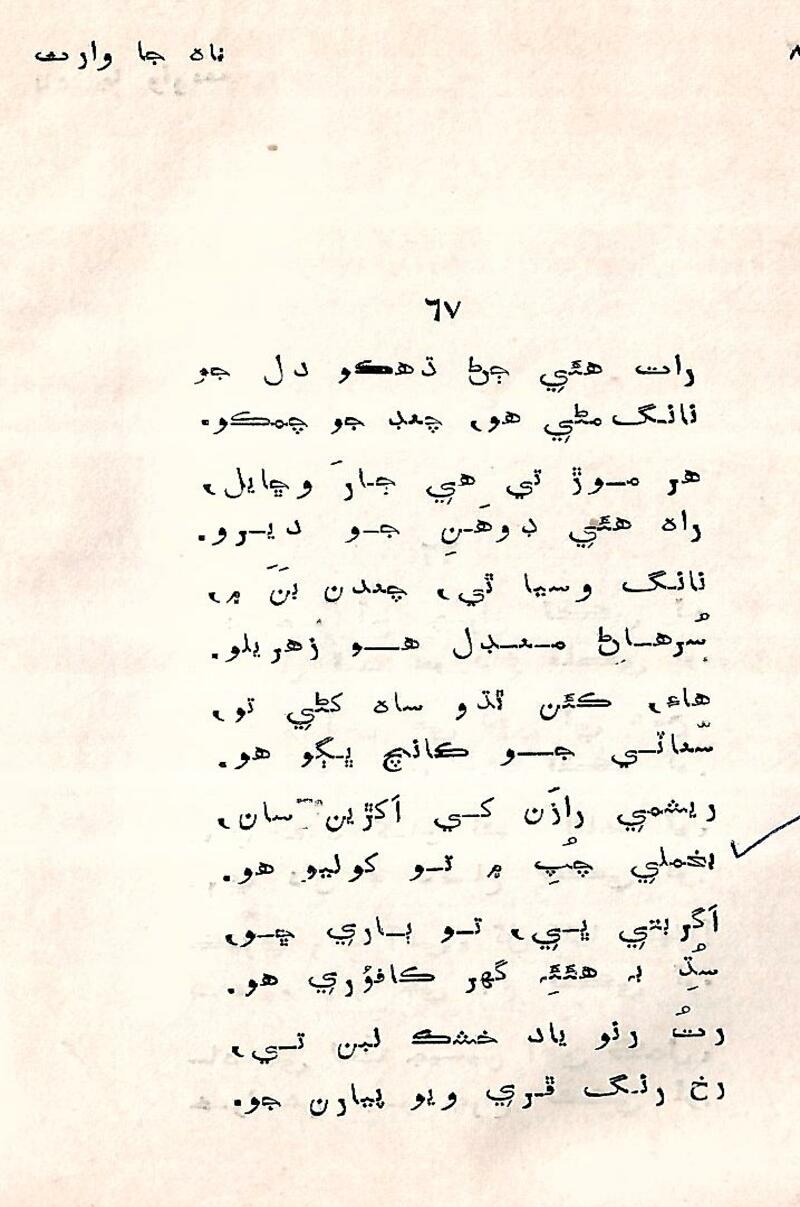 ناه جا وارث
٨
٦٧
رات هئي ڄڻ ڌهڪو دل جو
نانگ مڻي هو، چنڊ جو چمڪو.
هر موڙ تي هي ڄارَ وڇايل،
راه هئي ڊوهَنِ جو ديرو.
نانگ وسيا ٿي، چندن بَنَ ۾،
سُرهاڻِ منڊل هو زهريلو.
هاءِ، ڪئن ٿڌو ساه کڻي تو،
سّناٽي جو ڪانچ ڀڳو هو.
ريشمي رازَن کي اَکڙين سان،
مخملي چُپِ ۾ تو کوليو هو.
اَگربتي ڀي، تو ٻاري ڇو،
سُڌِ به هئيءِ گهر ڪافوُري هو.
رتُ رنو ياد خشڪ لبن تي،
رخ رنگ ڦري ويو پيارن جو.